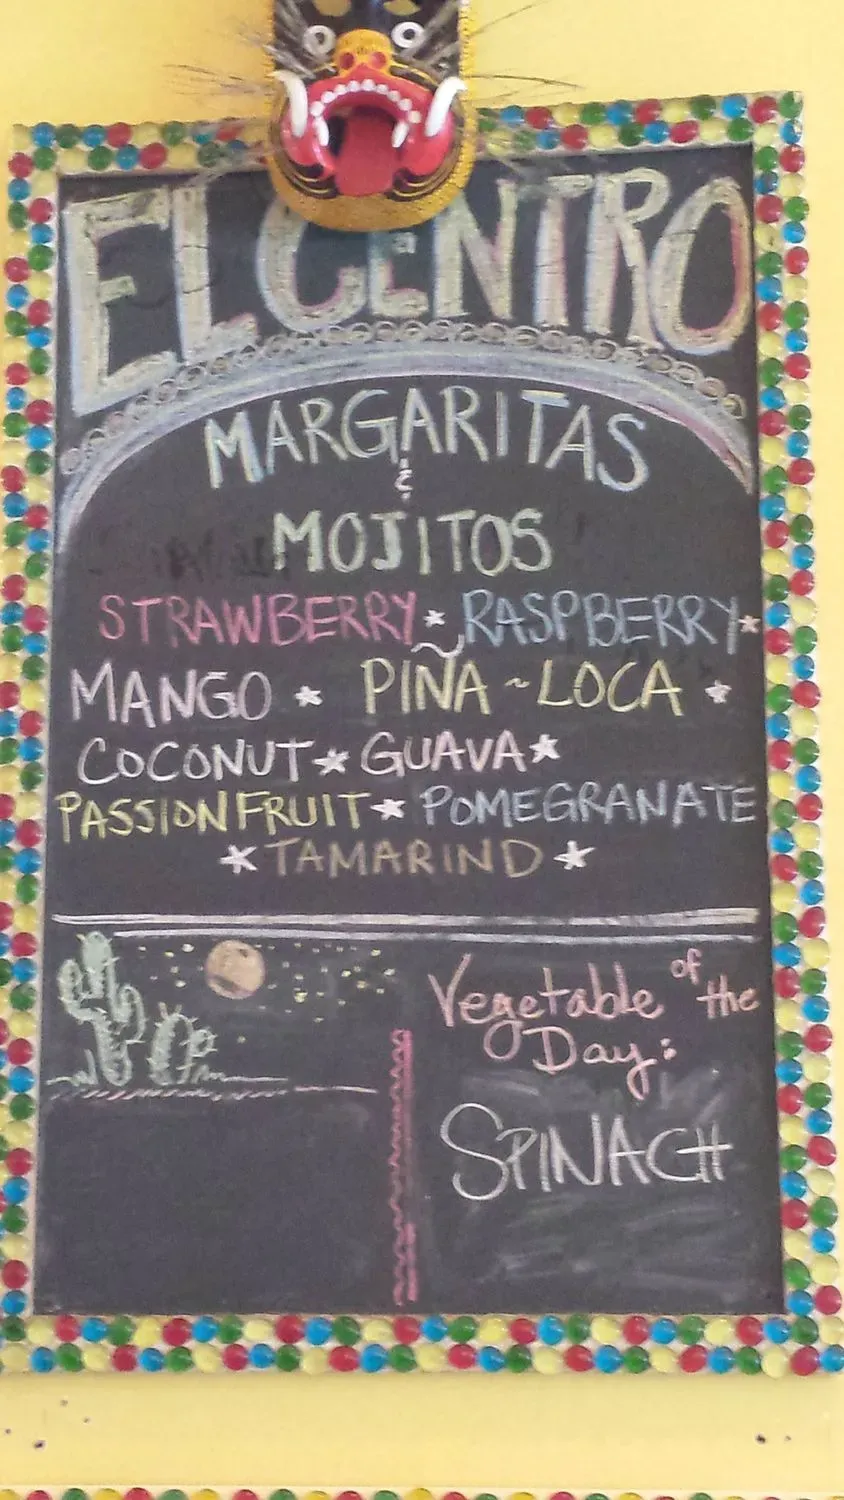 EL CENTRO
MARGARITAS
&
MOJITOS
STRAWBERRY * RASPBERRY *
MANGO * PIÑA ~ LOCA *
COCONUT * GUAVA *
PASSIONFRUIT * POMEGRANATE
* TAMARIND *
Vegetable of the
Day:
SPINACH